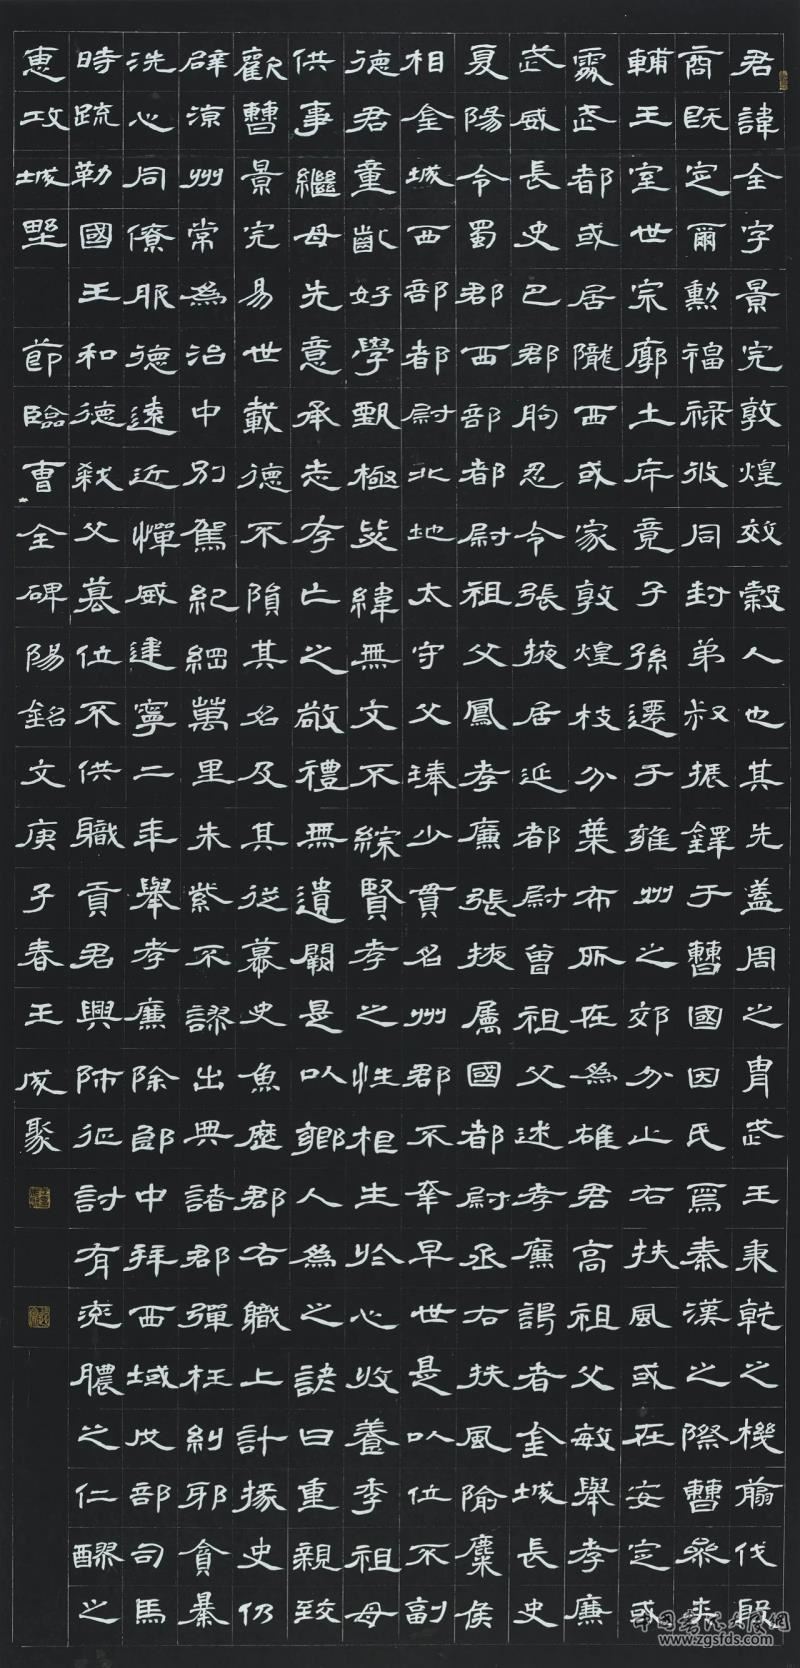 君諱全字景完敦煌效穀人也其先蓋周之胄武王秉乾之機翦伐殷
商既定爾勳福祿攸同封弟叔振鐸于曹國因氏焉秦漢之際曹參夾
輔王室世宗廓土斥竟子孫遷于雍州之郊分止右扶風或在安定或
處武都或居隴西或家敦煌枝分葉布所在為雄君高祖父敏舉孝廉
武威長史巴郡朐忍令張掖居延都尉曾祖父述孝廉謁者金城長史
夏陽令蜀郡西部都尉祖父鳳孝廉張掖屬國都尉丞右扶風隃麋侯
相金城西部都尉北地太守父琫少貫名州郡不幸早世是以位不副
德君童齔好學甄極毖緯無文不綜賢孝之性根生於心收養季祖母
供事繼母先意承志存亡之敬禮無遺闕是以鄉人為之諺曰重親致
歡曹景完易世載德不隕其名及其從慕史魚歷郡右職上計掾史仍
辟涼州常為治中別駕紀綱萬里朱紫不謬出典諸郡彈枉糾邪貪暴
洗心同僚服德遠近憚威建寧二年舉孝廉除郎中拜西域戊部司馬
時疏勒國王和德弒父篡位不供職貢君興師征討有兗膿之仁醪之
惠攻城野 節臨曹全碑陽銘文庚子春王成聚
中国书法大厦网
www.zgsfds.com